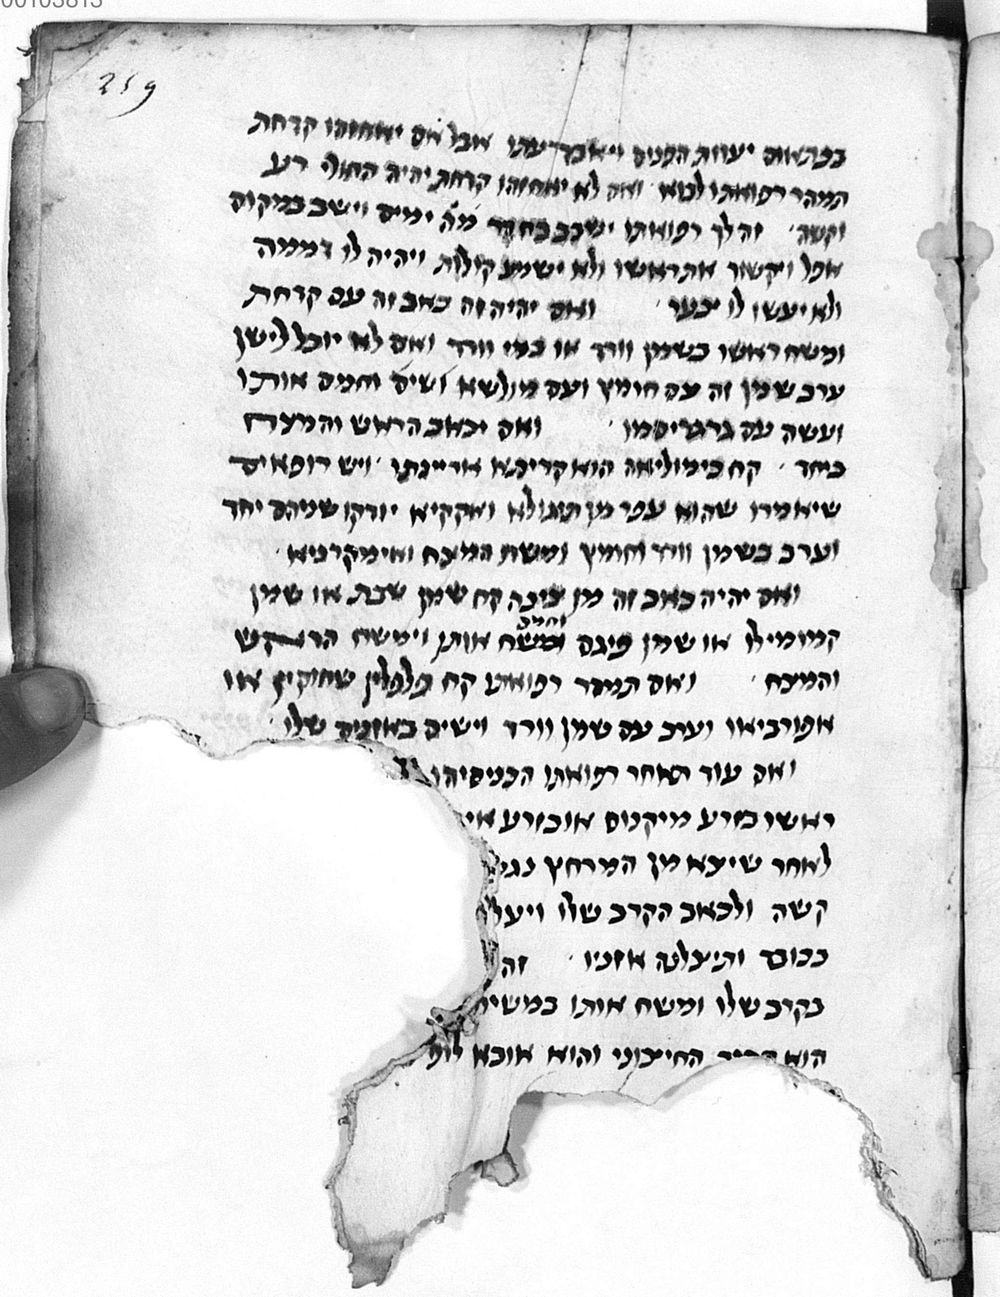 00103813
219
בפתאום יעוות הפנים ויאבד עתו אבל אם יאחזהו קדחת
תמהר רפואתו לבוא ואם לא יאחזהו קדחת יהיה החולי רע
וקשה זה לך רפואתו ישכב בחדר מה ימים וישב במקום
אפל ויקשור את ראשו ולא ישמע קולות ויהיה לו דממה
ולא יעשו לו צער ואם יהיה זה כאב זה עם קדחת
ומשח ראשו בשמן וורד או במי וורד ואם לא יוכל לישן
ערב שמן זה עם חומץ ועם מולשא ושים וחמם אותו
ועשה עם גרגריסמו ואם יכאב הראש והמצח
ביחד קח בימוליאה הוא קרימא ארייינתו ויש רופאים
שיאמרו שהוא עפר מן ואקקיא יודקו שניהם יחד
וערב בשמן וורד וחומץ ומשח המצח ואימקרניא
ואם יהיה כאב זה מן צינה קח שמן שבת או שמן
קמומילו או שמן פיגם וחמם ומשח אותן וימשח הראש
והמצח ואם תמהר רפואתו קח פלפלין שחוקין או
אפורביאו וערב עם שמן וורד וישים באזנים שלו
ואם עוד תאחר רפואתו הכניסיהו
ראשו בזרע מיקנוס או בזרע
לאחר שיצא מן המרחץ
קשה ולכאב הקרב שלו
ותיצלנה אזניו זה
בקרב שלו ומשח אותו
הוא החיצוני והוא אובא